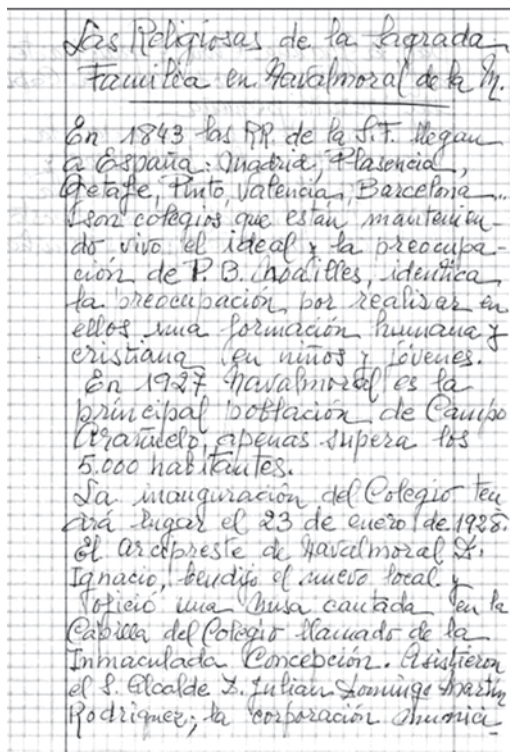 Las Religiosas de la Sagrada
Familia en Navalmoral de la M.
En 1843 las RR de la S.F. llegan
a España: Madrid, Plasencia,
Getafe, Pinto, Valencia, Barcelona...
Son colegios que están mantenien-
do vivo el ideal y la preocupa-
ción de P. B. Noailles, identica
la preocupación por realizar en
ellos una formación humana y
cristiana en niños y jóvenes.
En 1927 Navalmoral es la
principal población de Campo
Arañuelo, apenas supera los
5.000 habitantes.
La inauguración del Colegio ten
drá lugar el 23 de enero de 1928.
El arcipreste de Navalmoral D.
Ignacio, bendijo el nuevo local y
ofició una misa cantada en la
Capilla del Colegio llamado de la
Inmaculada Concepción. Asistieron
el S. Alcalde D. Julian Domingo Martín
Rodriguez; la corporación munici-